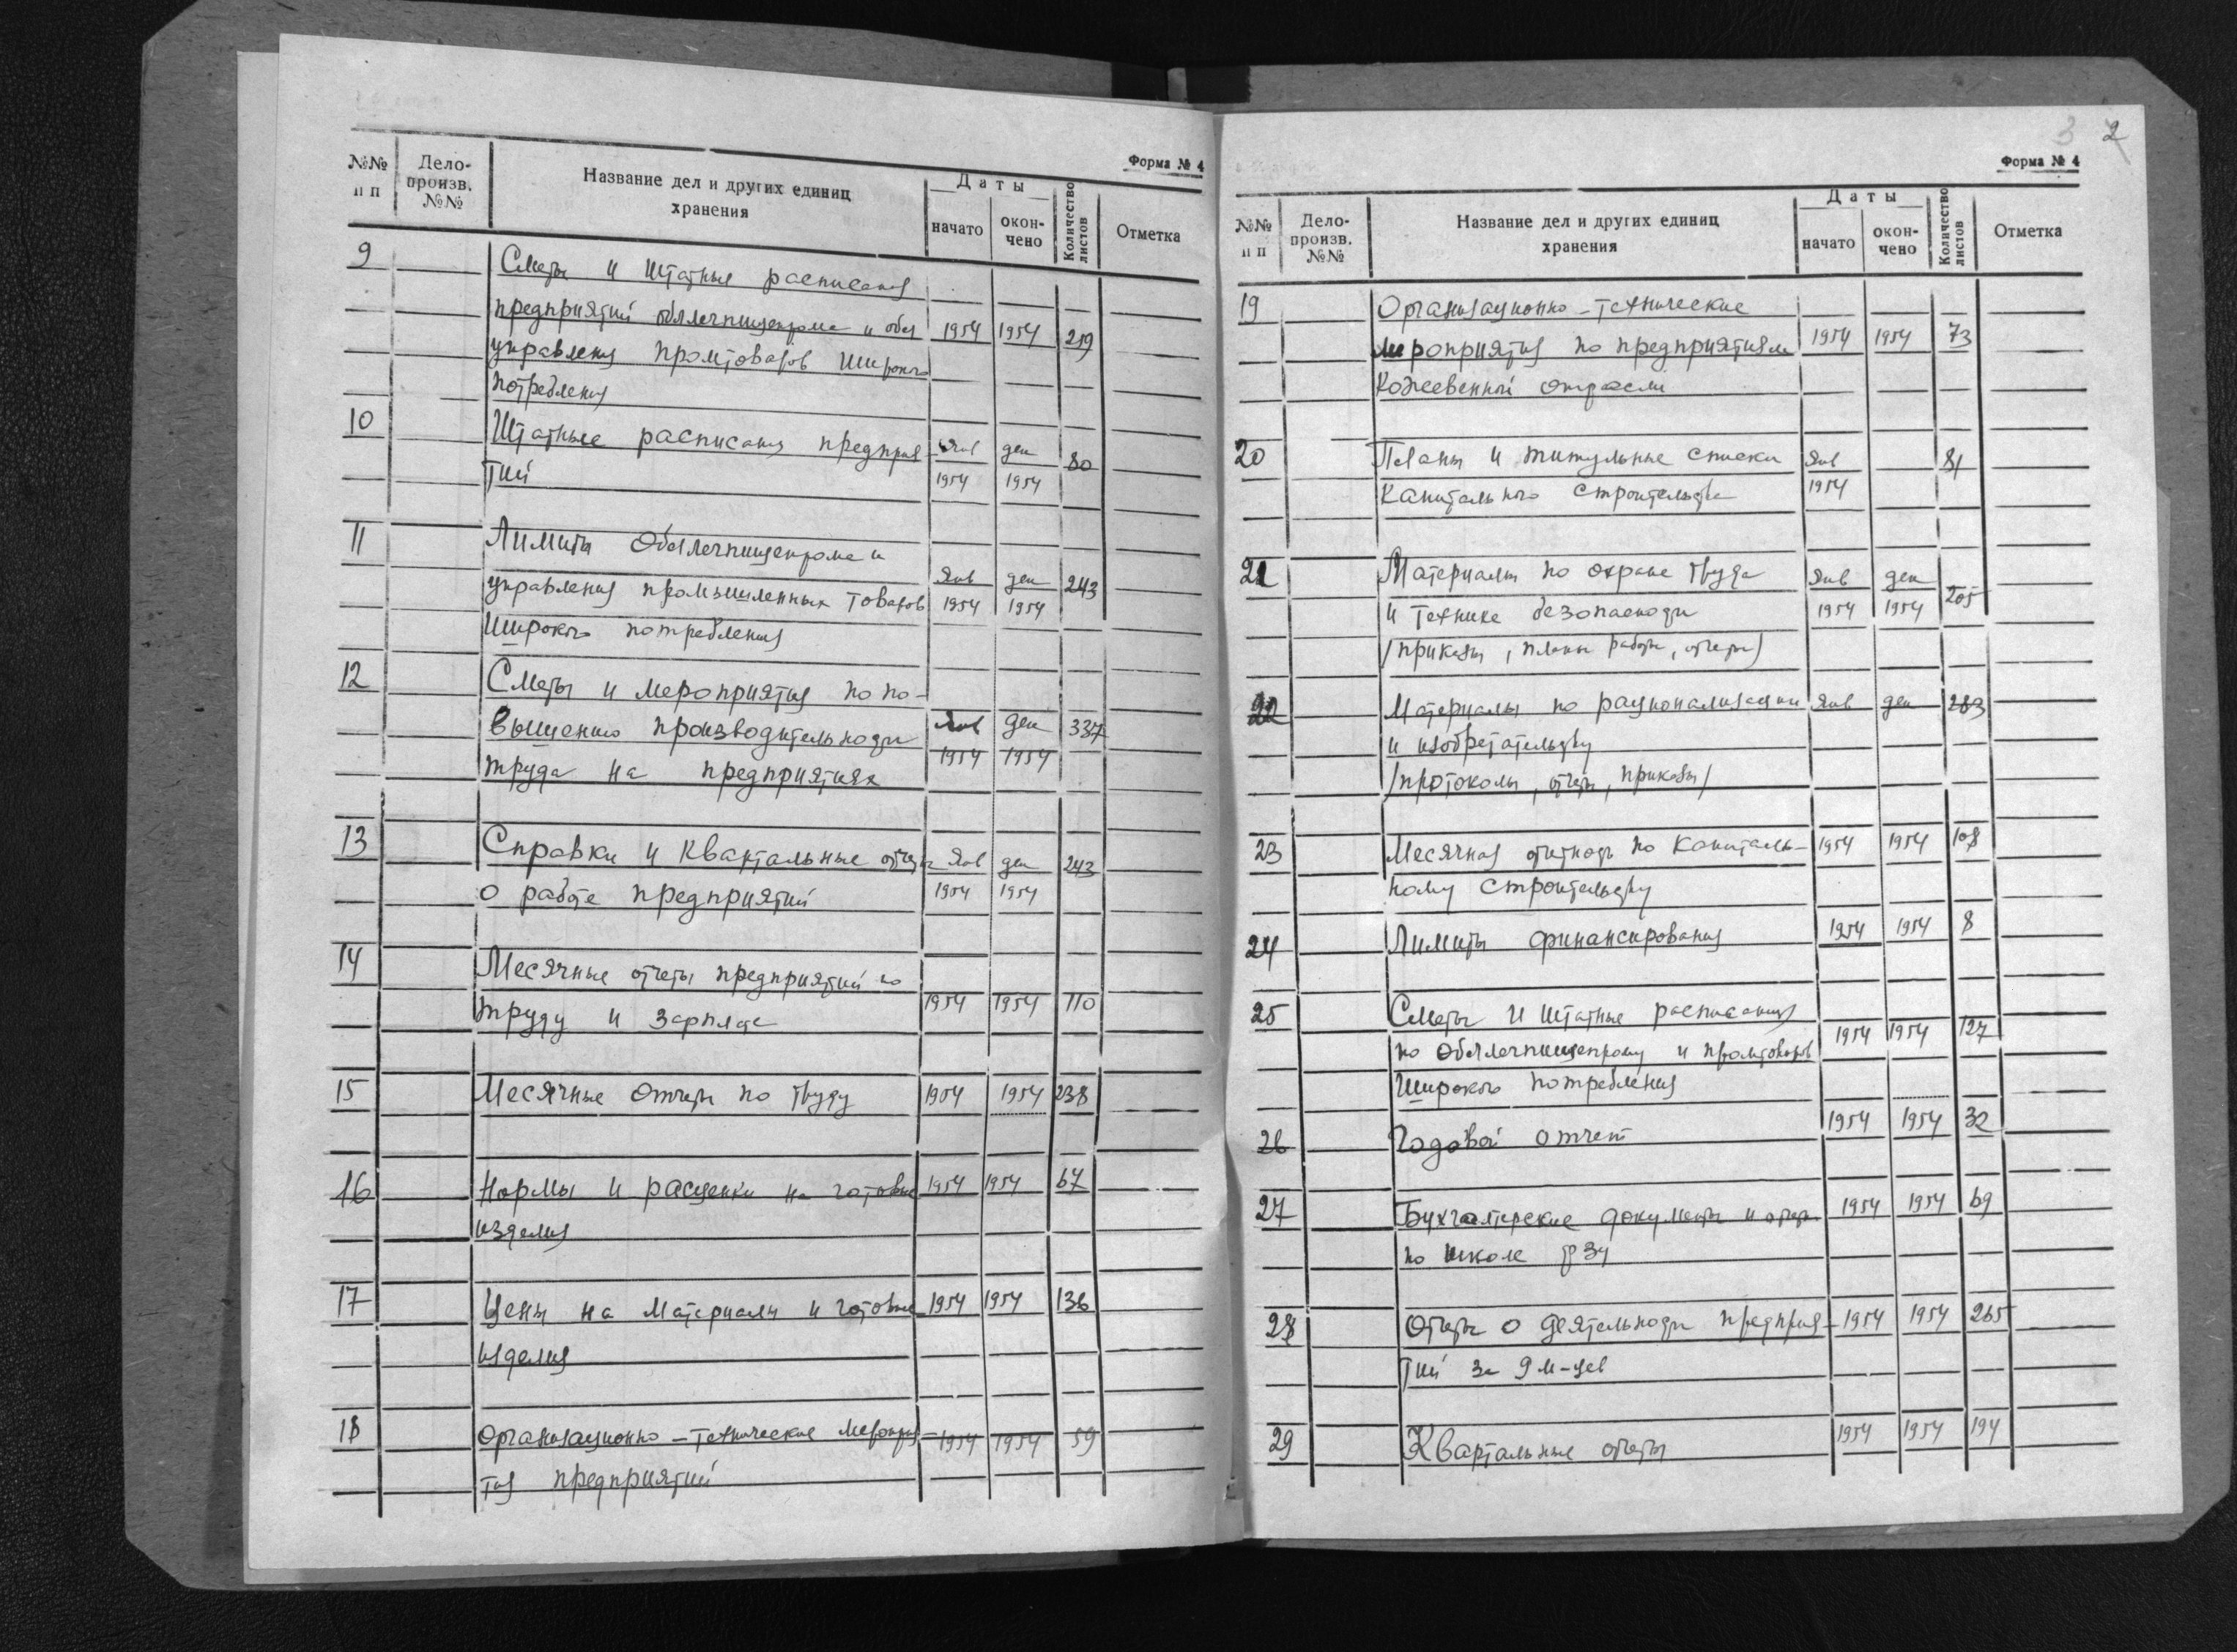 Форма № 4
№№ п п
Дело-произв. №№
Название дел и других единиц хранения
Даты
начато
окончено
Количество листов
Отметка
9 Сметы и штатные расписания
предприятий облмечпищепрома и обл
управления промтоваров широкого 1954 1954 219
потребления
10 Штатные расписания предприя- Янв ден 80
тий 1954 1954
11 Лимиты Облмечпищепрома и
управления промышленных товаров Янв ден 243
широкого потребления 1954 1954
12 Сметы и мероприятия по по-
вышению производительности Янв ден 337
труда на предприятиях 1954 1954
13 Справки и квартальные отчеты Янв ден 243
о работе предприятий 1954 1954
14 Месячные отчеты предприятий по
труду и зарплате 1954 1954 110
15 Месячные отчеты по труду 1954 1954 238
16 Нормы и расценки на готовые 1954 1954 67
изделия
17 Цены на материалы и готовые 1954 1954 136
изделия
18 Организационно-технические мероприя- 1954 1954 59
тия предприятий
2
Форма № 4
№№ п п
Дело-произв. №№
Название дел и других единиц хранения
Даты
начато
окончено
Количество листов
Отметка
19 Организационно-технические
мероприятия по предприятиям 1954 1954 73
кожевенной отрасли
20 Планы и титульные списки Янв 81
капитального строительства 1954
21 Материалы по охране труда Янв ден 205
и технике безопасности 1954 1954
/приказы, планы работы, отчеты/
22 Материалы по рационализации Янв ден 283
и изобретательству
/протоколы, отчеты, приказы/
23 Месячная отчетность по капиталь- 1954 1954 108
ному строительству
24 Лимиты финансирования 1954 1954 8
25 Сметы и штатные расписания
по Облмечпищепрому и промтоваров 1954 1954 127
широкого потребления
26 Годовой отчет 1954 1954 32
27 Бухгалтерские документы и отчеты 1954 1954 69
по школе 34
28 Отчеты о деятельности предприя- 1954 1954 265
тий за 9 м-цев
29 Квартальные отчеты 1954 1954 194